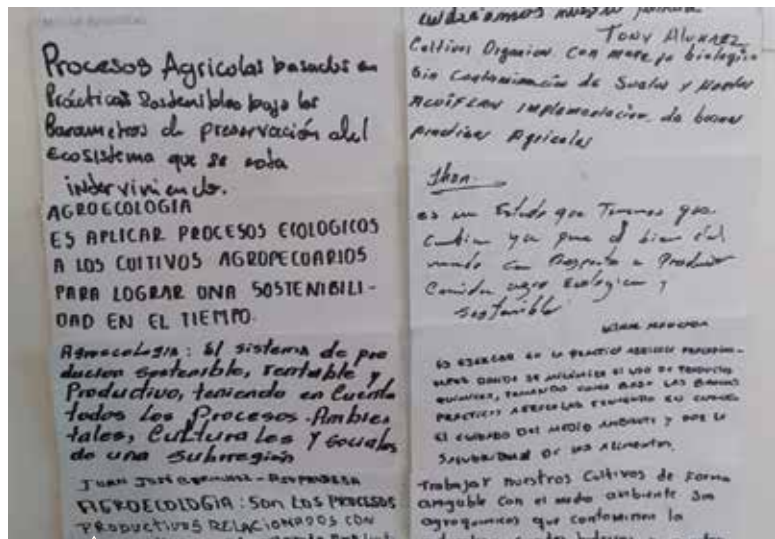 Procesos Agricolas basados en
Prácticas Sostenibles bajo los
Parametros de preservación del
Ecosistema que se esta
interviniendo.
AGROECOLOGIA
ES APLICAR PROCESOS ECOLOGICOS
A LOS CULTIVOS AGROPECUARIOS
PARA LOGRAR UNA SOSTENIBILI-
DAD EN EL TIEMPO.
Agroecologia: El sistema de pro
duccion sostenible, rentable y
Productivo, teniendo en Cuenta
todos los Procesos Ambien
tales, Culturales y sociales
de una subregión
JUAN JOSE
AGROECOLOGIA: SON LOS PROCESOS
PRODUCTIVOS RELACIONADOS CON
TONY ALVAREZ
Cultivos Organicos Con manejo biologico
Sin Contaminación de Suelos y
Implementacion de buenas
practicas Agricolas
Jhon
es un Estudio que Tenemos que
Cambiar ya para el bien del
mundo Con Respecto a Producir
Comidas agro Ecologicas y
Sostenible
ES EJERCER EN LA PRACTICA AGRICOLA
DONDE SE MINIMICE EL USO DE PRODUCTOS
QUIMICOS, TOMANDO COMO BASE LAS BUENAS
PRACTICAS AGRICOLAS TENIENDO EN CUENTA
EL CUIDADO DEL MEDIO AMBIENTE Y POR LA
SALUBRIDAD DE LOS ALIMENTOS.
Trabajar nuestros Cultivos de Forma
amigable Con el medio ambiente Sin
agroquimicos que contaminen la